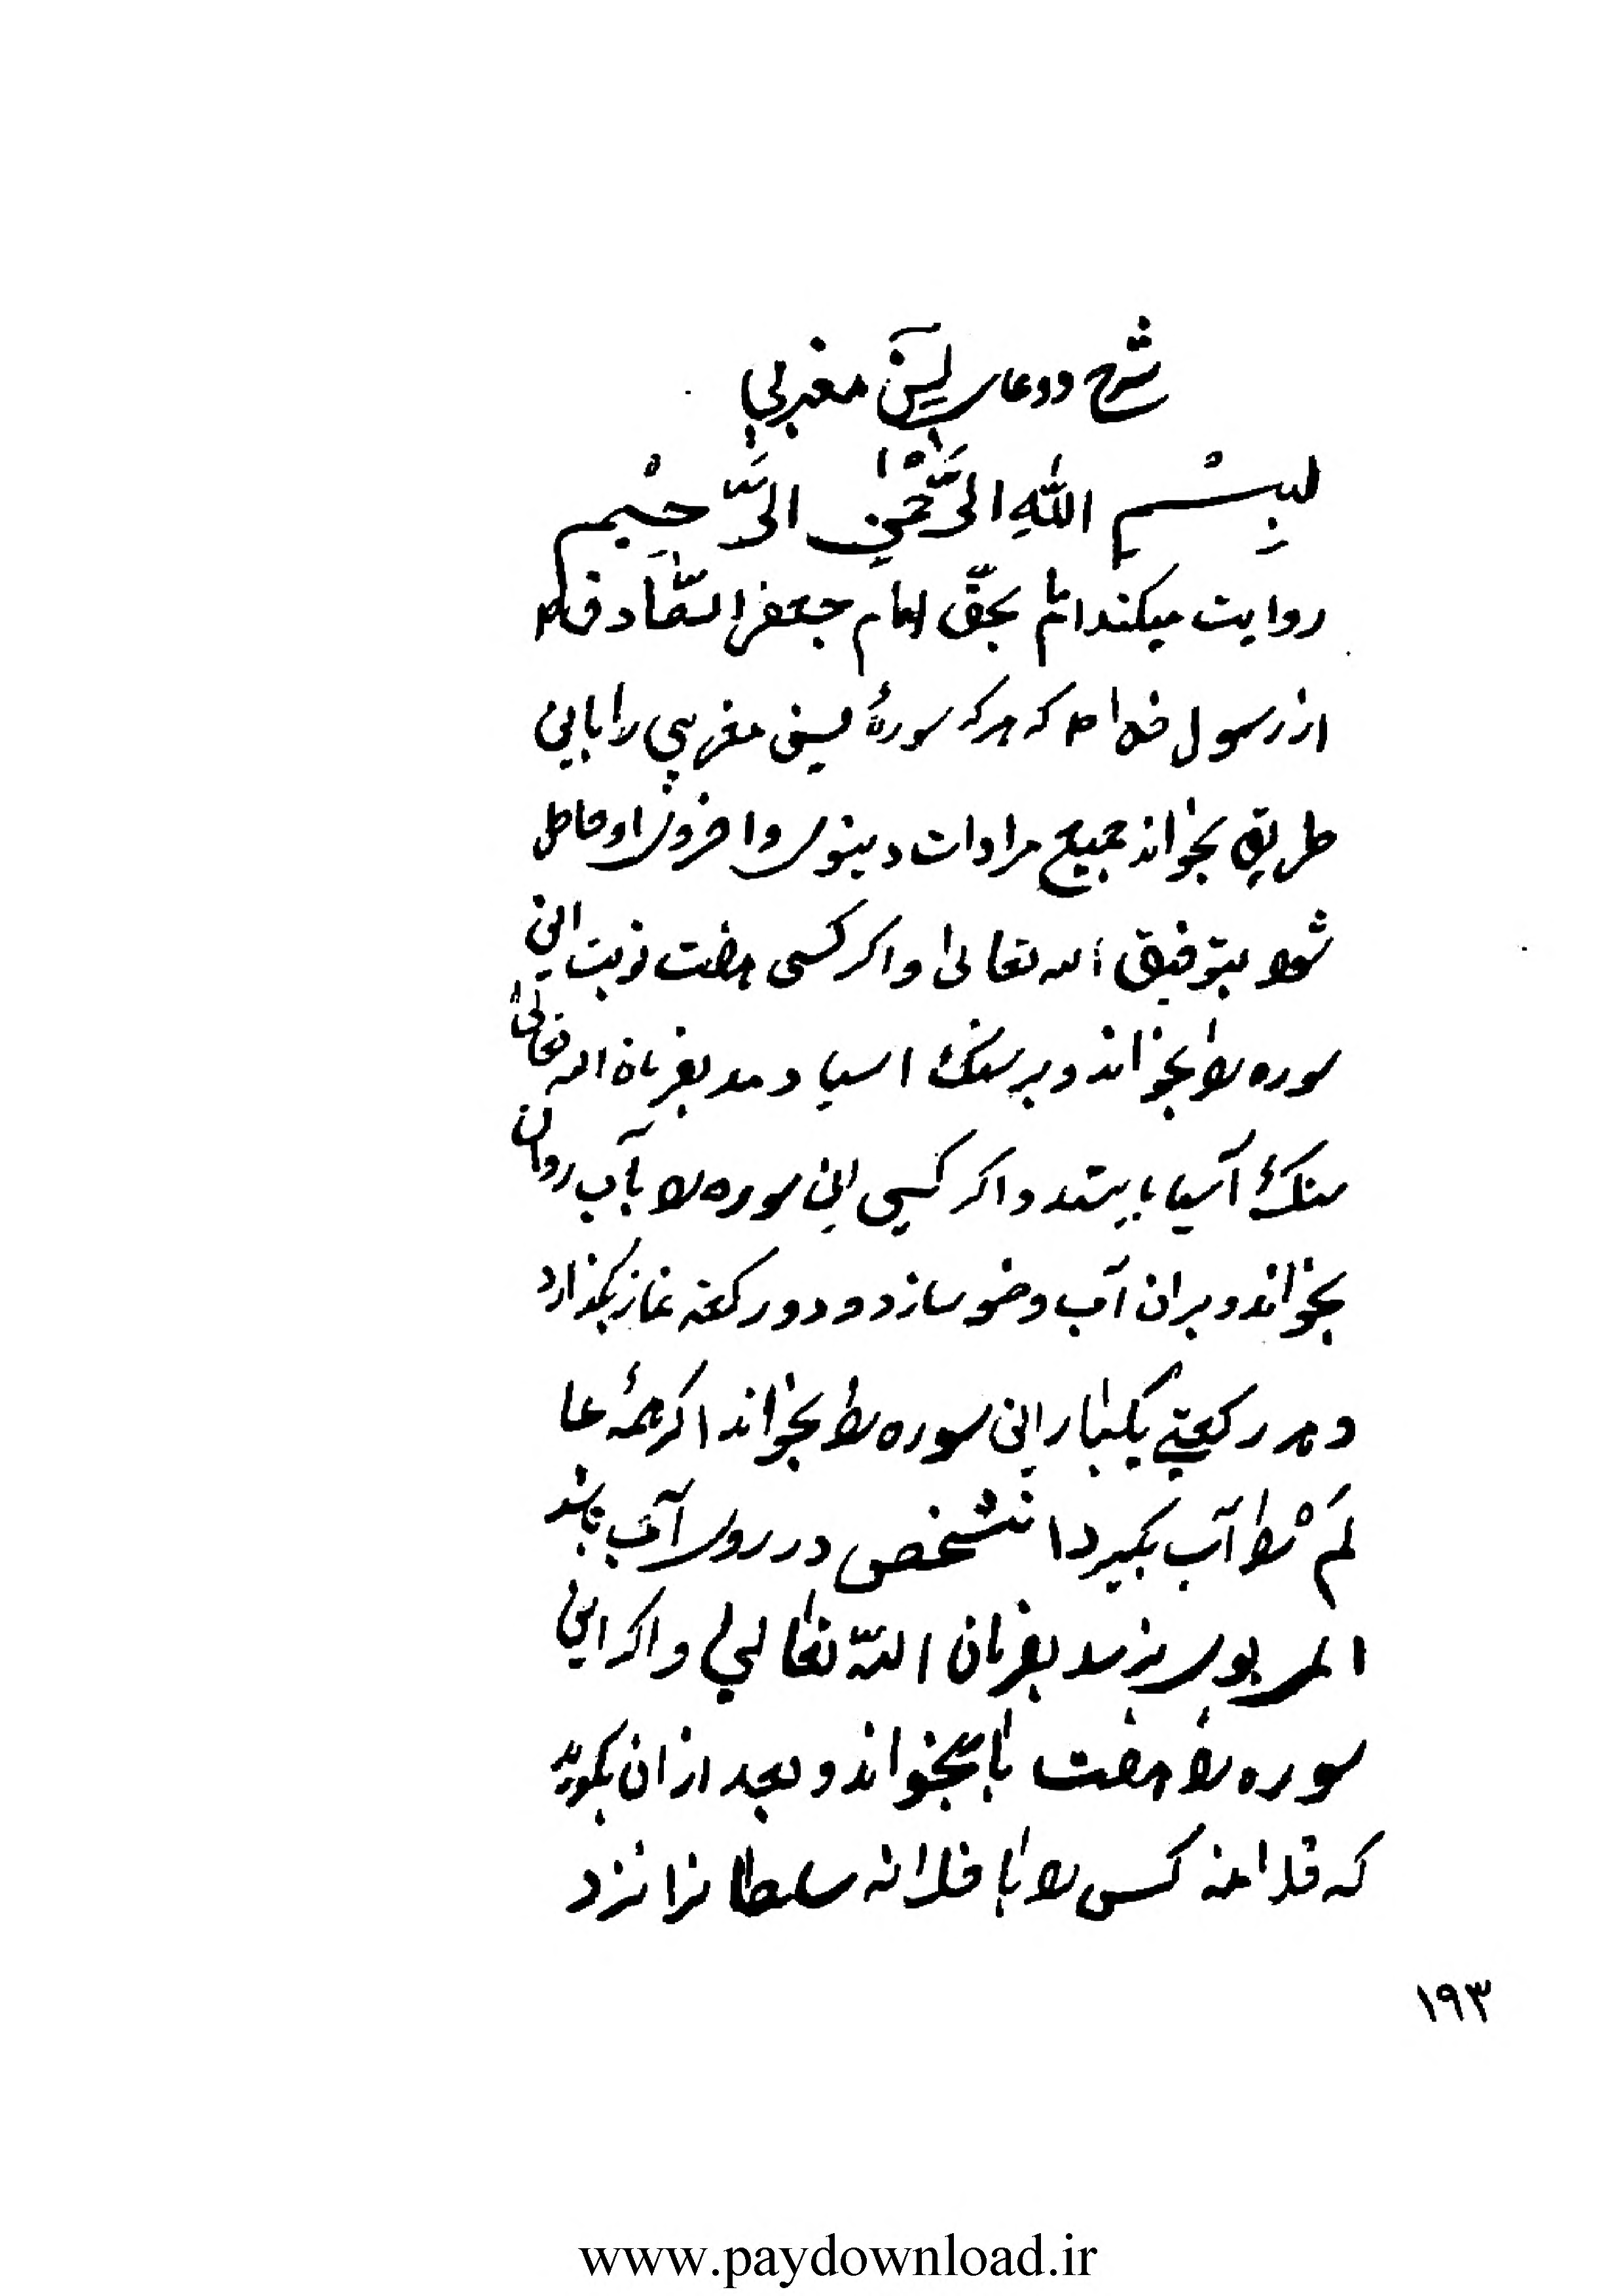 شرح و دعای یٰسن مغربی
بِسْمِ اللّٰهِ الرَّحْمٰنِ الرَّحِیْمِ
روایت میکند امام بحقّ امام جعفر الصّادق ۴
از رسول خدا ص که هر که سورهٔ یسن مغربی را باین
طریق بخواند جمیع مرادات دینوی و اخروی او حاصل
شود بتوفیق الله تعالیٰ و اکر کسی هفت نوبت این
سوره را بخواند و بر سنک اسیا دمد بفرمان الله تعالیٰ
سنک آسیا بایستد و اکر کسی این سوره را بآب روان
بخواند و بران آب وضو سازد و دو رکعت نماز بکذارد
در هر رکعتی یکبار این سوره را بخواند اکر همهٔ عا
لَمْ را آب بکیرد انشخص در روی آب باشد
المی بوی نرسد بفرمان اللّه تعالی و اکر این
سوره را هفت بار بخواند و بعد ازان بکوید
که فلانه کس را با فلانه سلطانرا نزد
۱۹۳
www.paydownload.ir